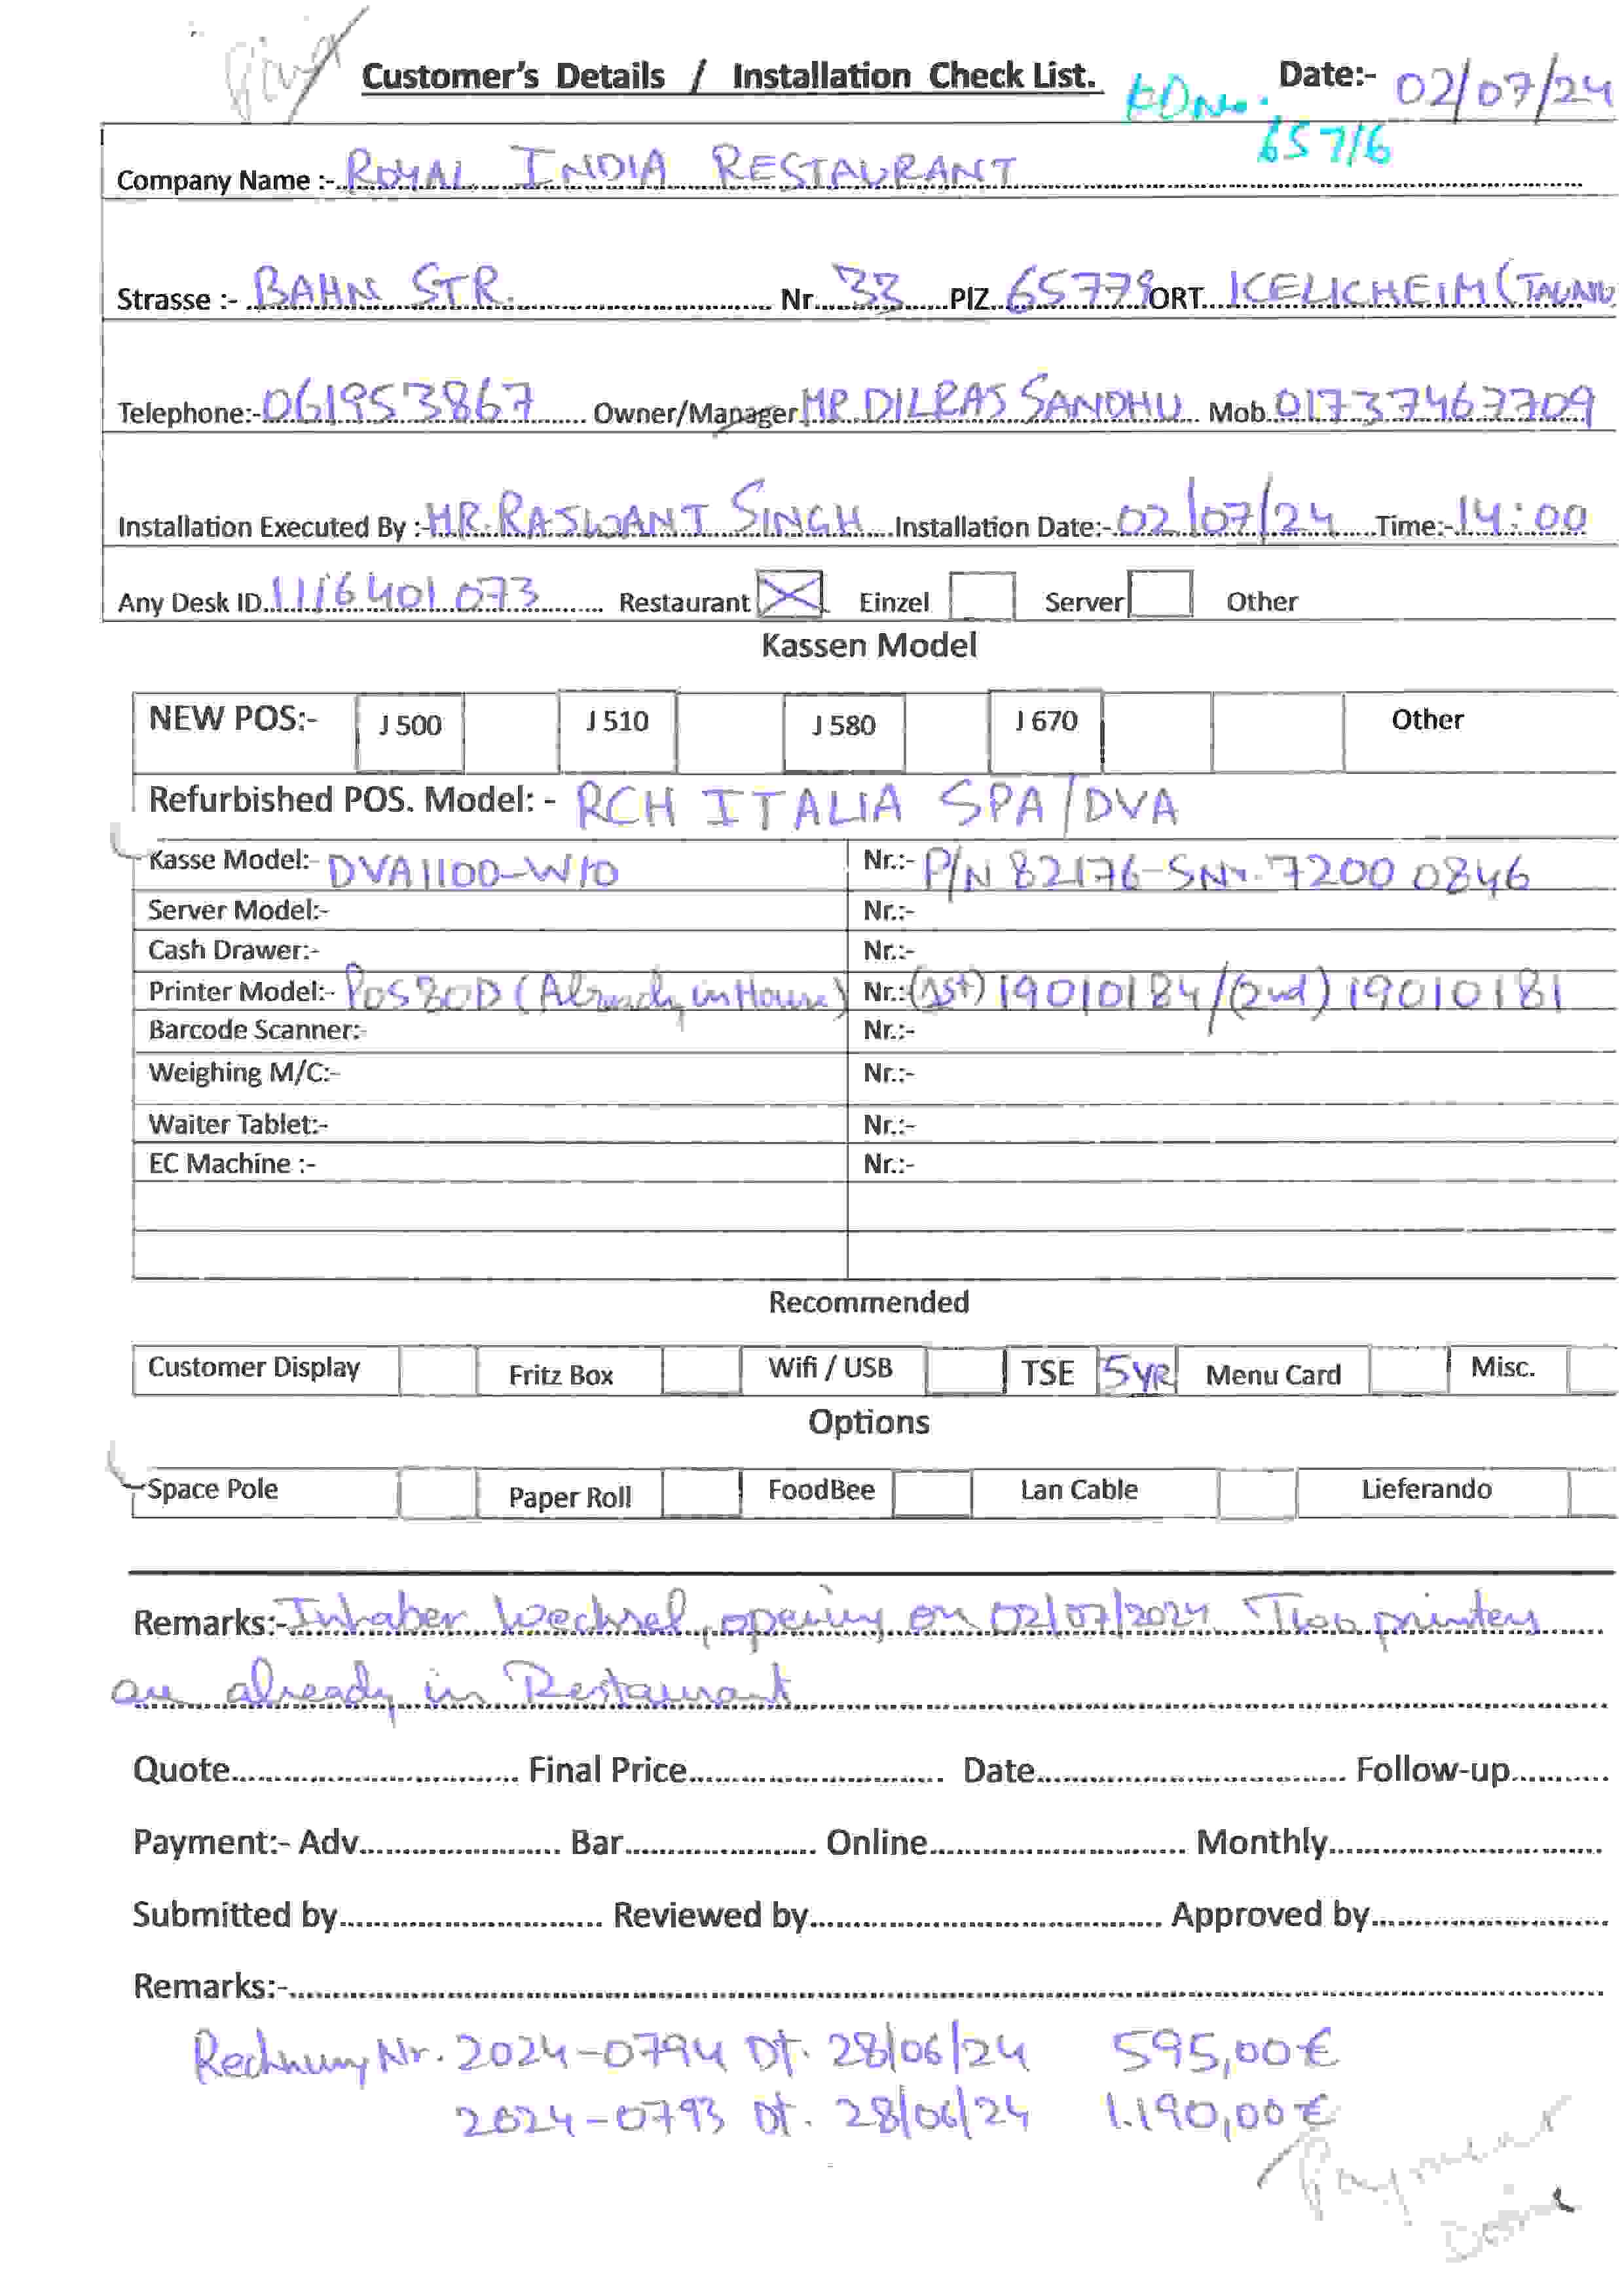 Customer's Details / Installation Check List. Date:- 02/07/24
KDNr. 65716
Company Name :- ROYAL INDIA RESTAURANT
Strasse :- BAHN STR. Nr. 33 PlZ 65779 ORT KELKHEIM (TAUNU
Telephone:- 061953867 Owner/Manager MR. DILRAS SANDHU Mob. 01737467709
Installation Executed By :- MR. RASWANT SINGH Installation Date:- 02/07/24 Time:- 14:00
Any Desk ID 1116401073 Restaurant ☒ Einzel Server Other
Kassen Model
NEW POS:- J 500 J 510 J 580 J 670 Other
Refurbished POS. Model: - RCH ITALIA SPA/DVA
Kasse Model:- DVA1100-W10 Nr.:- P/N 82176-SNr. 7200 0846
Server Model:- Nr.:-
Cash Drawer:- Nr.:-
Printer Model:- POS80D (Already in House) Nr.: (1st) 19010184/(2nd) 19010181
Barcode Scanner:- Nr.:-
Weighing M/C:- Nr.:-
Waiter Tablet:- Nr.:-
EC Machine :- Nr.:-
Recommended
Customer Display Fritz Box Wifi / USB TSE 5YR Menu Card Misc.
Options
Space Pole Paper Roll FoodBee Lan Cable Lieferando
Remarks:- Inhaber Wechsel, opening on 02/07/2024. Two printers
are already in Restaurant
Quote Final Price Date Follow-up
Payment:- Adv. Bar Online Monthly
Submitted by Reviewed by Approved by
Remarks:-
Rechnung Nr. 2024-0794 Dt. 28/06/24 595,00€
2024-0793 Dt. 28/06/24 1.190,00€
Payment